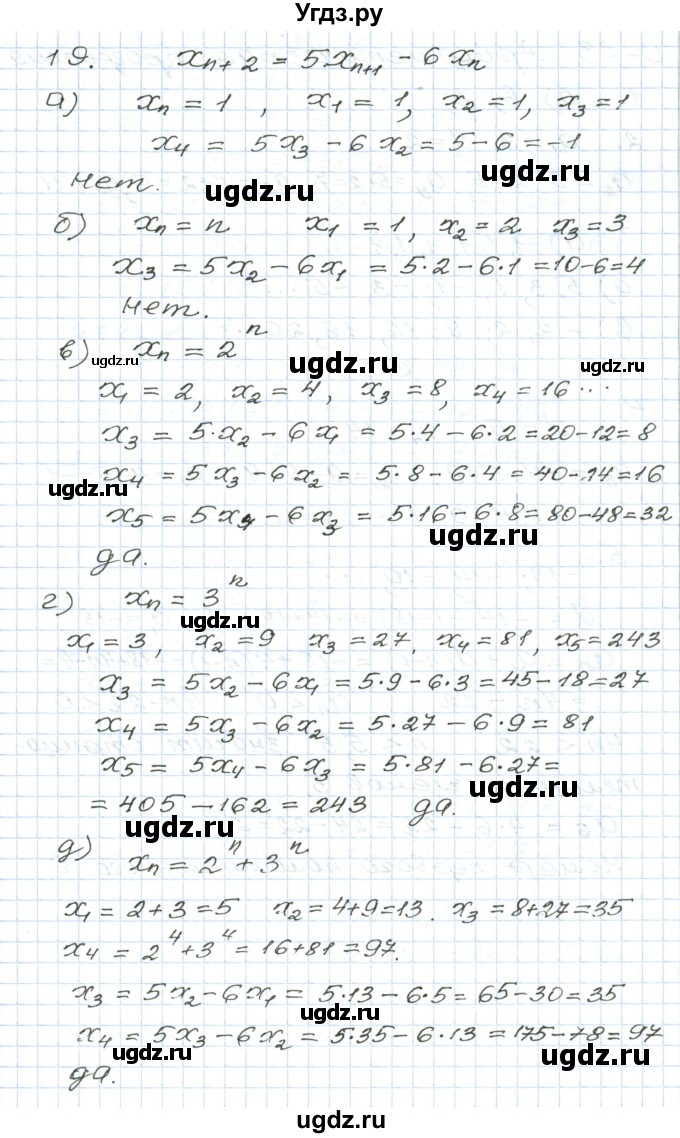 Угдз.ру
19. xₙ₊₂ = 5xₙ₊₁ - 6xₙ
а) xₙ = 1, x₁ = 1, x₂ = 1, x₃ = 1
x₄ = 5x₃ - 6x₂ = 5 - 6 = -1
нет. ugdz.ru ugdz.ru
б) xₙ = n x₁ = 1, x₂ = 2 x₃ = 3
x₃ = 5x₂ - 6x₁ = 5·2 - 6·1 = 10 - 6 = 4
нет.
в) ugdz.ru xₙ = 2ⁿ ugdz.ru ugdz.ru
x₁ = 2, x₂ = 4, x₃ = 8, x₄ = 16 ...
x₃ = 5·x₂ - 6x₁ = 5·4 - 6·2 = 20 - 12 = 8
x₄ = 5x₃ - 6x₂ = 5·8 - 6·4 = 40 - 14 = 16
ugdz.ru
x₅ = 5x₄ - 6x₃ = 5·16 - 6·8 = 80 - 48 = 32
ugdz.ru
да.
г) xₙ = 3ⁿ
ugdz.ru
x₁ = 3, x₂ = 9 x₃ = 27, x₄ = 81, x₅ = 243
x₃ = 5x₂ - 6x₁ = 5·9 - 6·3 = 45 - 18 = 27
x₄ = 5x₃ - 6x₂ = 5·27 - 6·9 = 81
x₅ = 5x₄ - 6x₃ = 5·81 - 6·27 =
ugdz.ru
= 405 - 162 = 243 да.
ugdz.ru
д) xₙ = 2ⁿ + 3ⁿ
x₁ = 2 + 3 = 5 x₂ = 4 + 9 = 13. x₃ = 8 + 27 = 35
x₄ = 2⁴ + 3⁴ = 16 + 81 = 97.
x₃ = 5x₂ - 6x₁ = 5·13 - 6·5 = 65 - 30 = 35
ugdz.ru
x₄ = 5x₃ - 6x₂ = 5·35 - 6·13 = 175 - 78 = 97
ugdz.ru ugdz.ru
да.
ugdz.ru